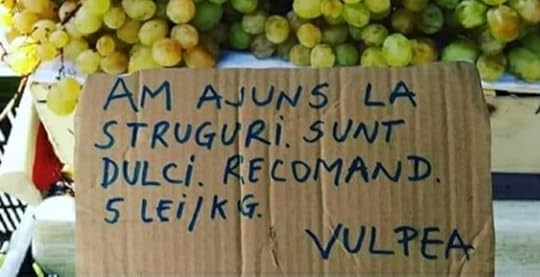 AM AJUNS LA
STRUGURI. SUNT
DULCI. RECOMAND.
5 LEI/KG.
VULPEA